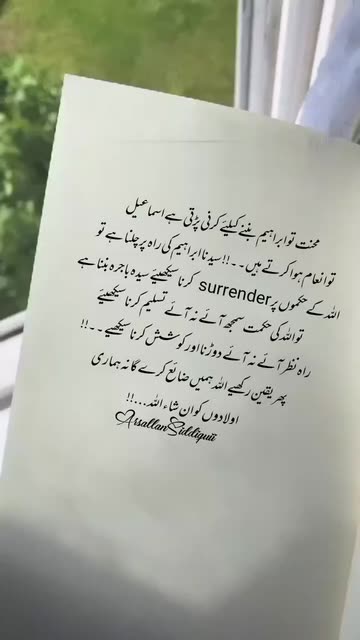 محنت تو ابراہیم بننے کیلئے کرنی پڑتی ہے اسماعیل
تو انعام ہوا کرتے ہیں۔۔!! سیدنا ابراہیم کی راہ پر چلنا ہے تو
اللہ کے حکموں پر surrender کرنا سیکھیئے سیدہ ہاجرہ بننا ہے
تو اللہ کی حکمت سمجھ آئے نہ آئے تسلیم کرنا سیکھیئے
راہ نظر آئے نہ آئے دوڑنا اور کوشش کرنا سیکھیے۔۔!!
پھر یقین رکھیے اللہ ہمیں ضائع کرے گا نہ ہماری
اولادوں کو ان شاء اللہ...!!
Arsallan Siddiquii